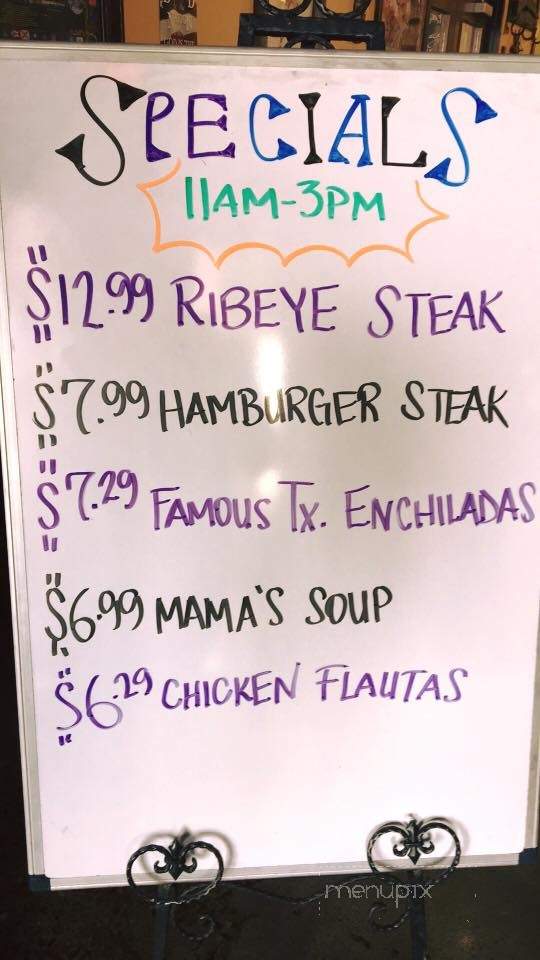 SPECIALS
11AM-3PM
$12.99 RIBEYE STEAK
$7.99 HAMBURGER STEAK
$7.29 FAMOUS TX. ENCHILADAS
$6.99 MAMA'S SOUP
$6.29 CHICKEN FLAUTAS
menupix